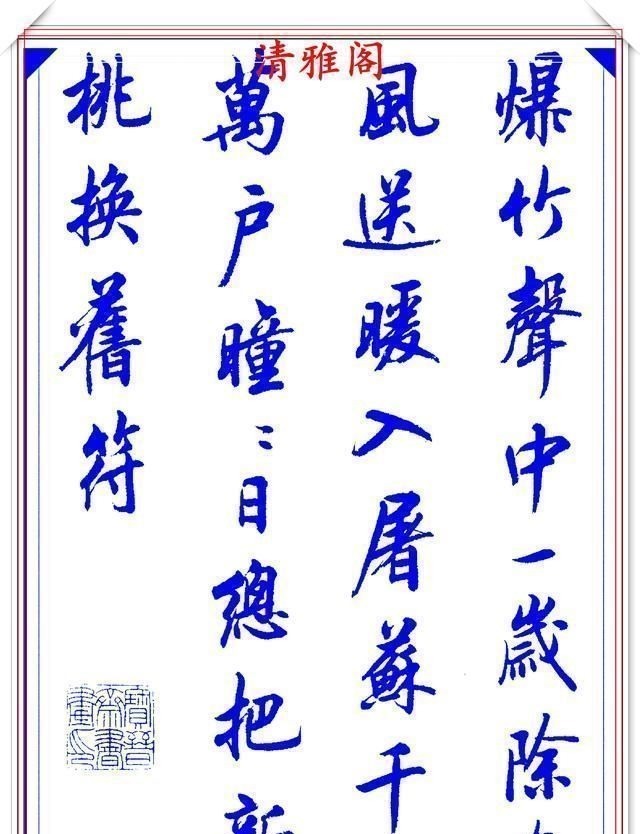 清雅阁
爆竹聲中一歲除
風送暖入屠蘇千
萬户瞳〻日總把新
桃換舊符